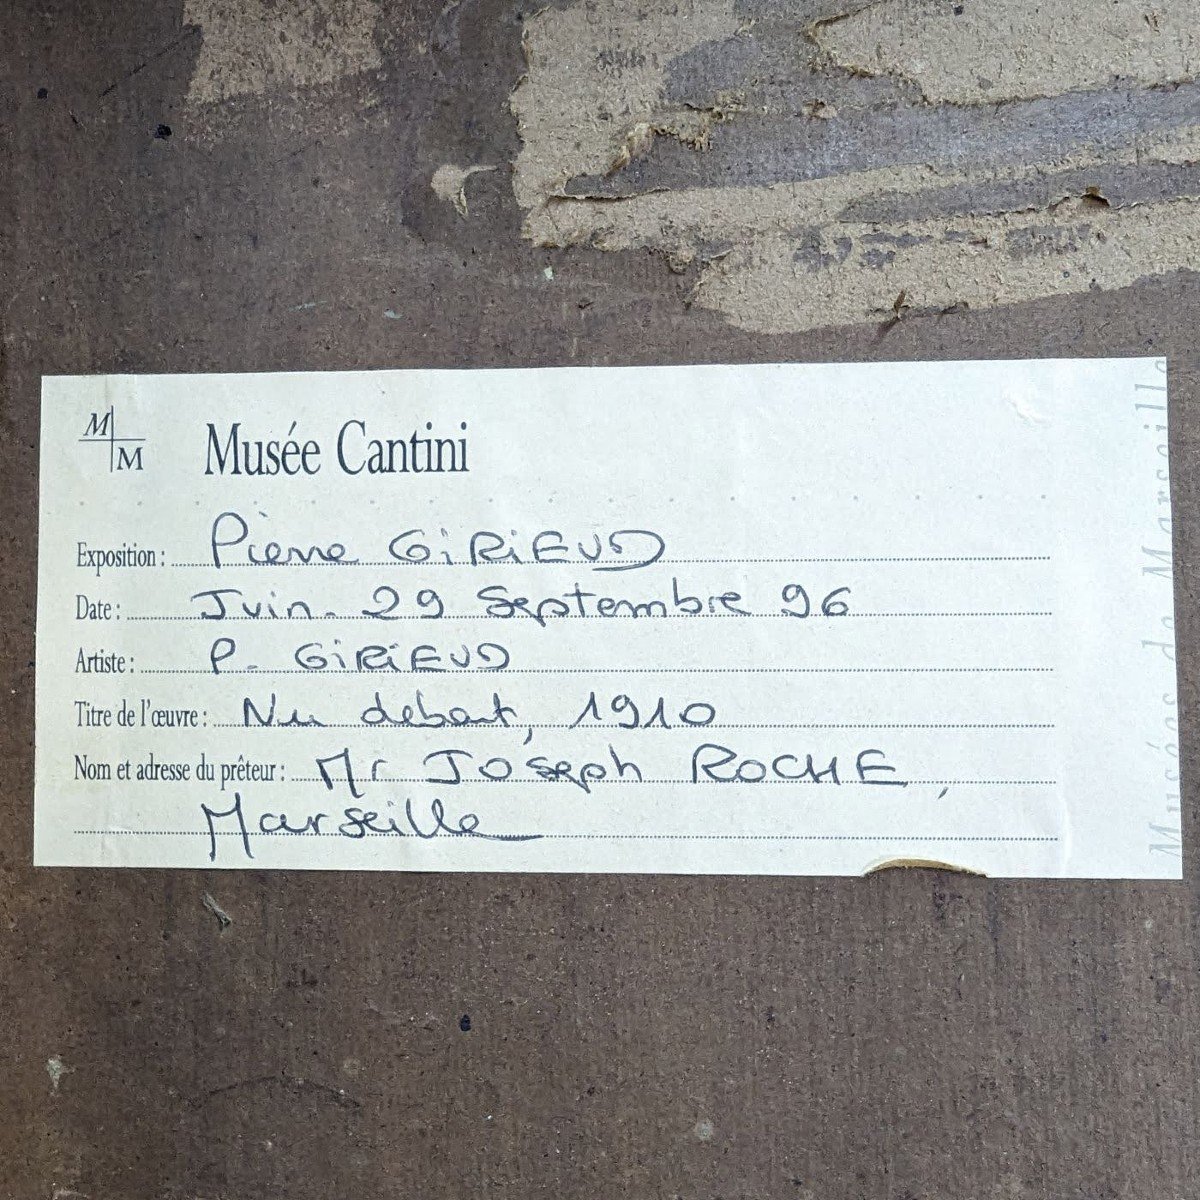 M
M
Musée Cantini
Exposition : Pierre GIRIEUD
Date : Juin - 29 Septembre 96
Artiste : P. GIRIEUD
Titre de l'œuvre : Nu debout, 1910
Nom et adresse du prêteur : Mr Joseph ROCHE,
Marseille
Musées de Marseille